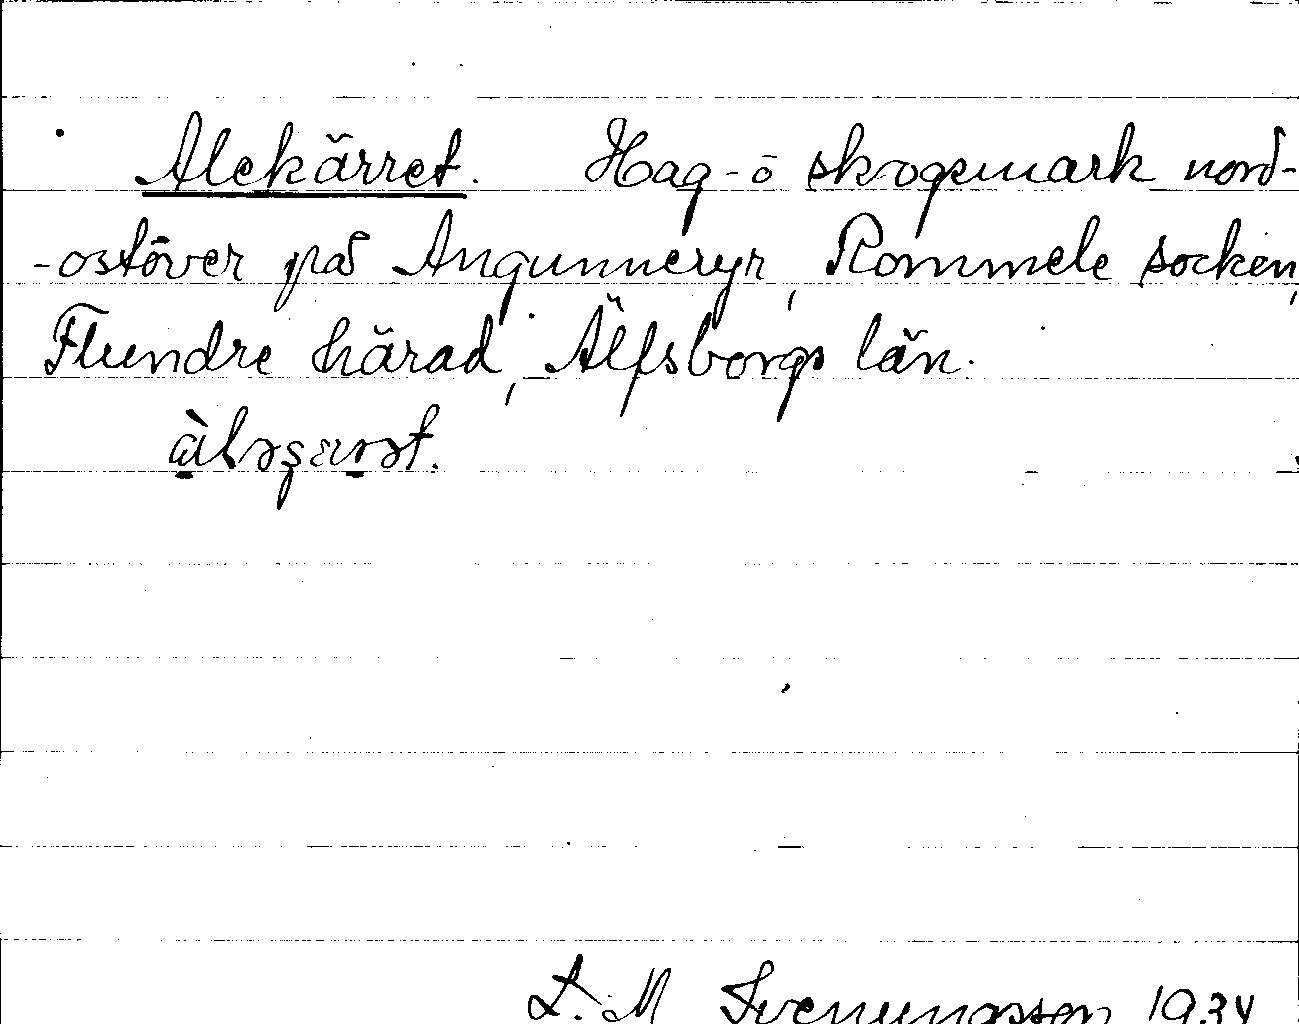 Alekärret. Hag- ö skogsmark nord-
-ostöver på Angunneryr, Rommele socken,
Flundre härad, Älfsborgs län.
L. M Svenungsson 1934